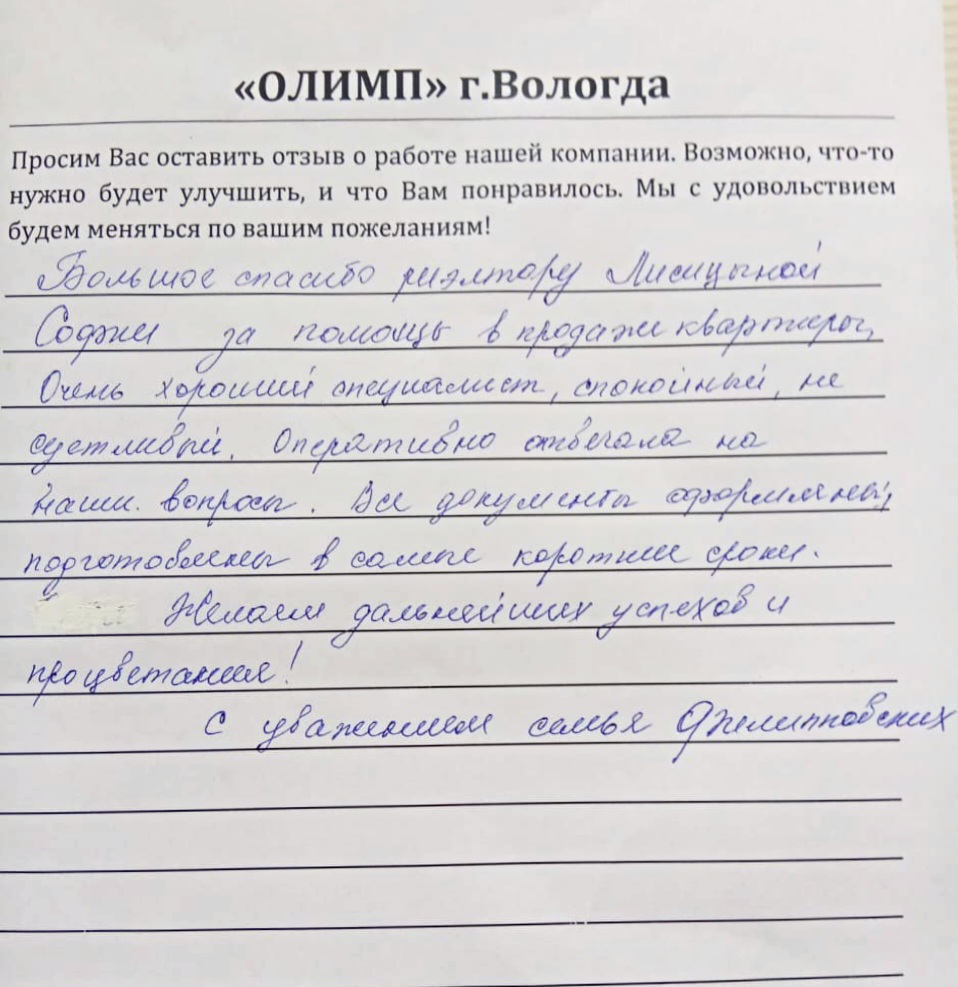 «ОЛИМП» г.Вологда
Просим Вас оставить отзыв о работе нашей компании. Возможно, что-то
нужно будет улучшить, и что Вам понравилось. Мы с удовольствием
будем меняться по вашим пожеланиям!
Большое спасибо риэлтору Лисицыной
Софии за помощь в продаже квартиры,
Очень хороший специалист, спокойный, не
суетливый. Оперативно отвечала на
наши вопросы. Все документы оформлены,
подготовлены в самые короткие сроки.
Желаем дальнейших успехов и
процветания!
С уважением семья Филипповских